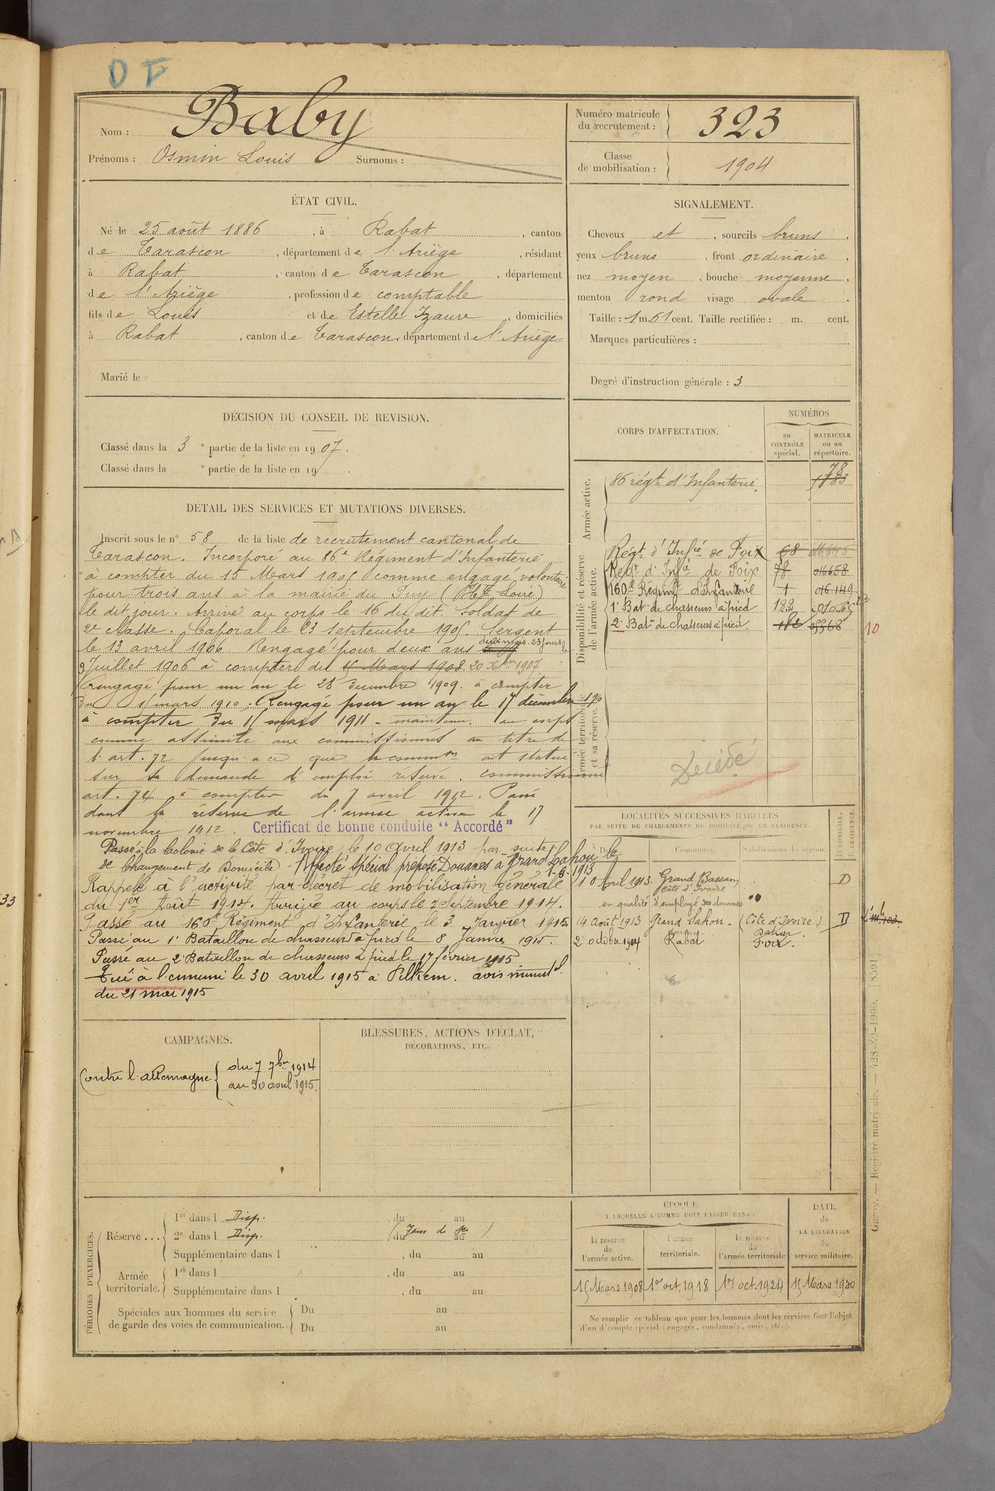 D F
Nom : Baby
Prénoms : Osmin Louis Surnoms :
Numéro matricule du recrutement : 323
Classe de mobilisation : 1904
ÉTAT CIVIL.
Né le 25 août 1886, à Rabat, canton
de Tarascon, département de l'Ariège, résidant
à Rabat, canton de Tarascon, département
de l'Ariège, profession de comptable
fils de Louis et de Estelle Izaure, domiciliés
à Rabat, canton de Tarascon, département de l'Ariège
Marié le
SIGNALEMENT.
Cheveux et, sourcils bruns.
yeux bruns, front ordinaire.
nez moyen, bouche moyenne.
menton rond visage ovale.
Taille : 1 m. 61 cent. Taille rectifiée : m. cent.
Marques particulières :
Degré d'instruction générale : 3
DÉCISION DU CONSEIL DE REVISION.
Classé dans la 3e partie de la liste en 1907.
Classé dans la e partie de la liste en 19 .
DÉTAIL DES SERVICES ET MUTATIONS DIVERSES.
Inscrit sous le n° 58 de la liste de recrutement cantonal de
Tarascon. Incorporé au 86e Régiment d'Infanterie
à compter du 15 Mars 1905 comme engagé volontaire
pour trois ans à la mairie du Puy (Hte Loire)
le dit jour. Arrivé au corps le 16 du dit. Soldat de
2e classe. Caporal le 23 septembre 1905. Sergent
le 13 avril 1906. Rengagé pour deux ans 23 jours le
9 Juillet 1906 à compter du 15 Mars 1908 20 Xbre 1907
Rengagé pour un an le 28 décembre 1909. à compter
du mars 1910. Rengagé pour un an le 17 décembre 1910
à compter du 15 mars 1911 - mainten. au corps
comme assimilé aux commissionnés au titre de
l'art. 72 jusqu'à ce que la common ait statué
sur sa demande d'emploi réservé. commissionné
art. 74 à compter du 7 avril 1912. Passé
dans la réserve de l'armée active le 17
novembre 1912. Certificat de bonne conduite "Accordé"
Passé à la Colonie de la Côte d'Ivoire, le 10 Avril 1913 par suite
de changement de Domicile. Affecté spécial préposé Douanes à Grand Lahou le
1913
Rappelé à l'activité par décret de mobilisation générale
du 1er Août 1914. Arrivé au corps le 2 Septembre 1914.
Passé au 160e Régiment d'Infanterie le 3 Janvier 1915
Passé au 1er Bataillon de chasseurs à pied le 8 Janvier 1915.
Passé au 2e Bataillon de chasseurs à pied le 17 février 1915
Tué à l'ennemi le 30 avril 1915 à Pilkem. avis minist.l
du 21 mai 1915
CORPS D'AFFECTATION.
NUMÉROS
au CONTRÔLE spécial.
MATRICULE ou au répertoire.
Armée active.
86 régt d'Infanterie. 78 1783
Disponibilité et réserve de l'armée active.
Régt d'Infie de Foix 68
Régt d'Infie de Foix 78 014658
160e Régimt d'Infanterie 1 016149
1er Bat de chasseurs à pied 182
2e Batn de chasseurs à pied 182
10
Armée territoriale et sa réserve.
Décédé
LOCALITÉS SUCCESSIVES HABITÉES
PAR SUITE DE CHANGEMENTS DE DOMICILE OU DE RÉSIDENCE.
Dates. Communes. Subdivisions de région. D. DOMICILE. R. RÉSIDENCE.
10 Avril 1913. Grand Bassam Côte d'Ivoire D
en qualité d'employé des douanes
14 Août 1913 Grand Lahou. (Côte d'Ivoire) D
2 octobre 1914 Rabat Foix.
CAMPAGNES.
Contre l'allemagne { du 7 7bre 1914
au 30 avril 1915.
BLESSURES, ACTIONS D'ÉCLAT,
DÉCORATIONS, ETC.
PÉRIODES D'EXERCICES.
Réserve ... 1re dans l Disp. du au
2e dans l Disp. du au
Supplémentaire dans l , du au
Armée territoriale. 1re dans l , du au
Supplémentaire dans l , du au
Spéciales aux hommes du service
de garde des voies de communication. Du au
Du au
ÉPOQUE
À LAQUELLE L'HOMME DOIT PASSER DANS :
la réserve de l'armée active.
l'armée territoriale.
la réserve de l'armée territoriale
DATE de LA LIBÉRATION du service militaire.
15 Mars 1908 1er oct. 1918 1er oct. 1924 15 Mars 1930
Ne remplir ce tableau que pour les hommes dont les services font l'objet
d'un décompte spécial (engagés, condamnés, omis, etc.).
33